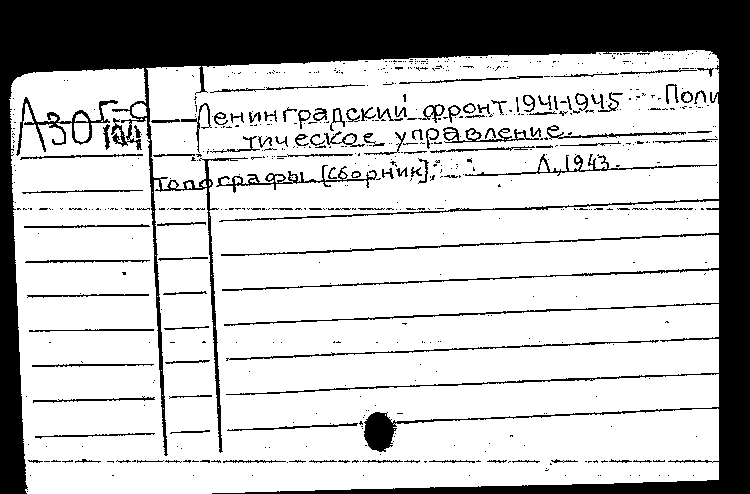 А30 Г-0
Ленинградский фронт. 1941-1945 Поли
тическое управление.
Топографы [сборник]. Л., 1943.